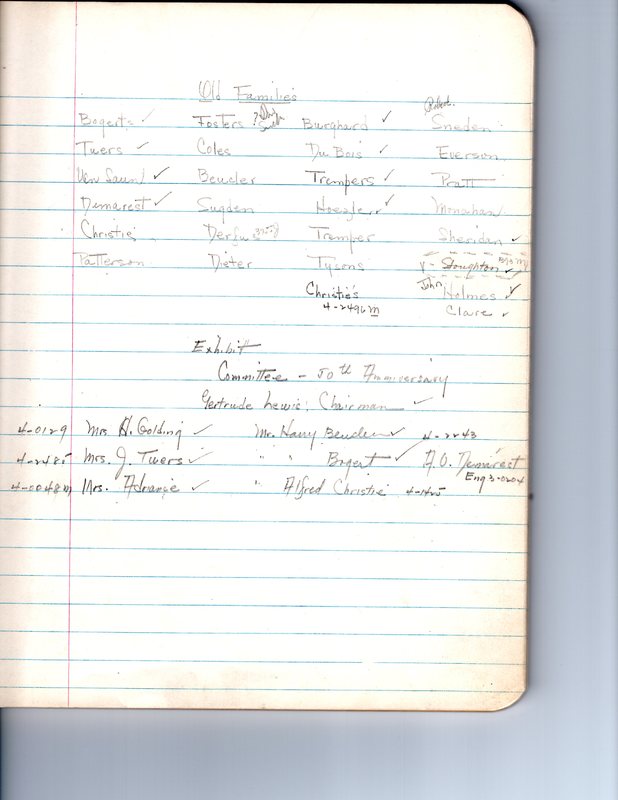 Old Families
Robert
Bogerts ✓ Fosters ? Burghard ✓ Sneden
Twers ✓ Coles Du Bois ✓ Everson
Van Saun ✓ Beucler Trempers ✓ Pratt
Demarest ✓ Sugden Hoezle ✓ Monahan
Christie Tremper Sheridan ✓
Patterson Dieter Tysons Stoughton ✓
Christie's John Holmes ✓
4-2496 m Clare ✓
Exhibit
Committee - 50th Anniversary
Gertrude Lewis, Chairman ✓
4-0129 Mrs H. Golding ✓ Mr. Harry Beucler ✓ 4-2243
4-2485 Mrs. J. Twers ✓ " " Bogert ✓ A.O. Demarest
Eng 3-0204
4-0048m Mrs. Adriance ✓ " Alfred Christie 4-1425